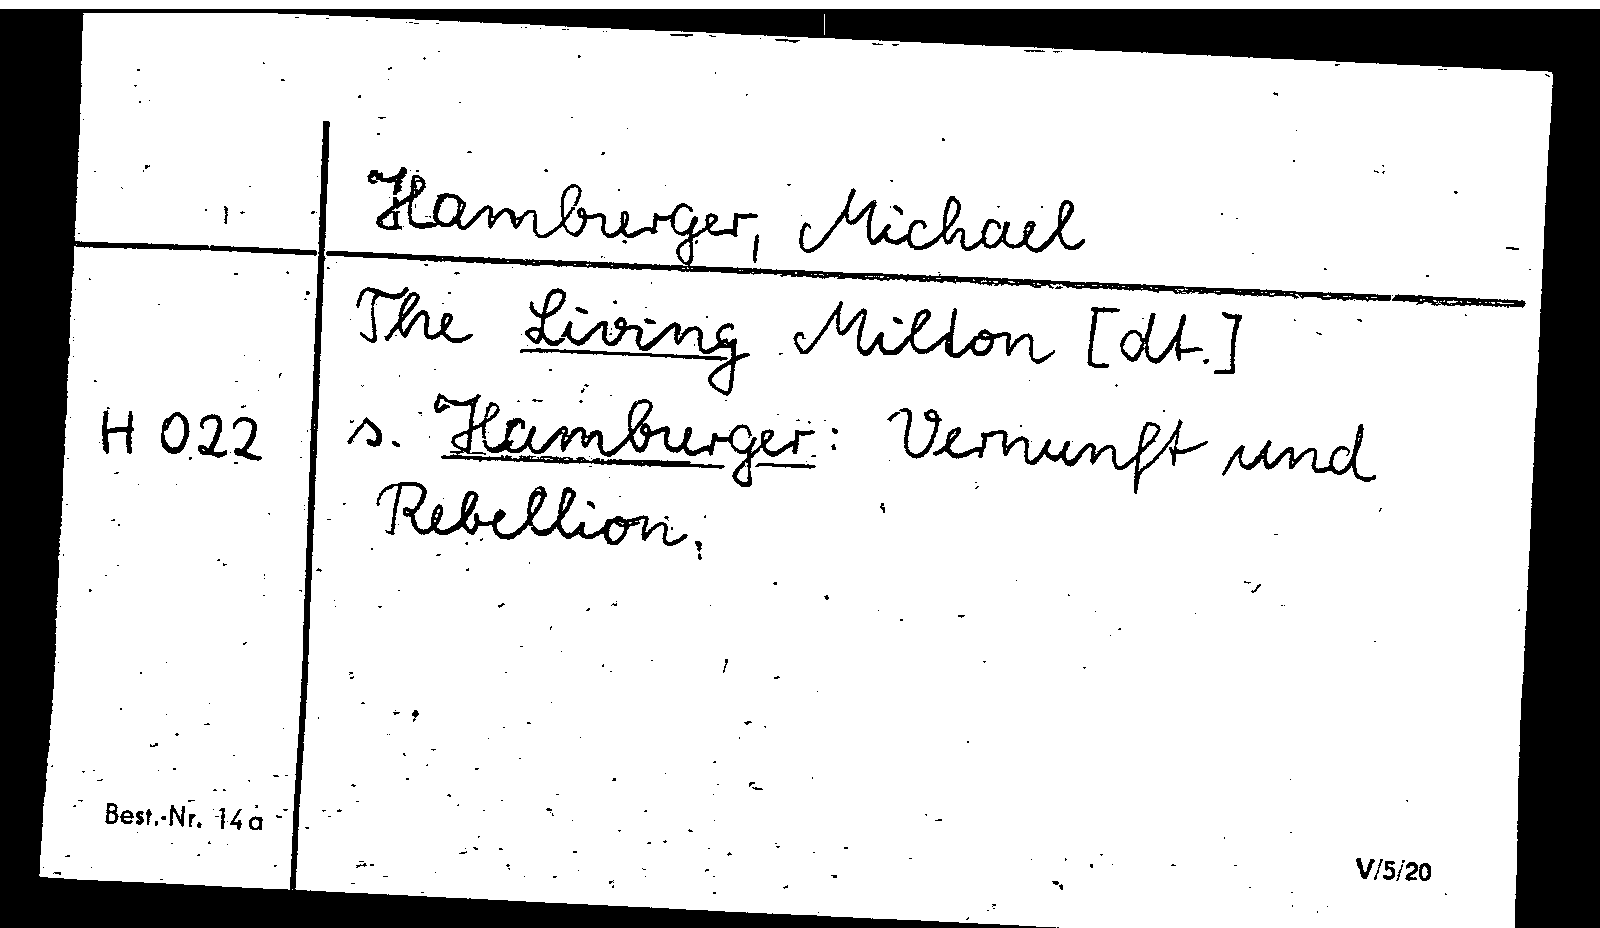 Hamburger, Michael
The Living Milton [dt.]
H 022 s. Hamburger: Vernunft und
Rebellion.
Best.-Nr. 14a
V/5/20